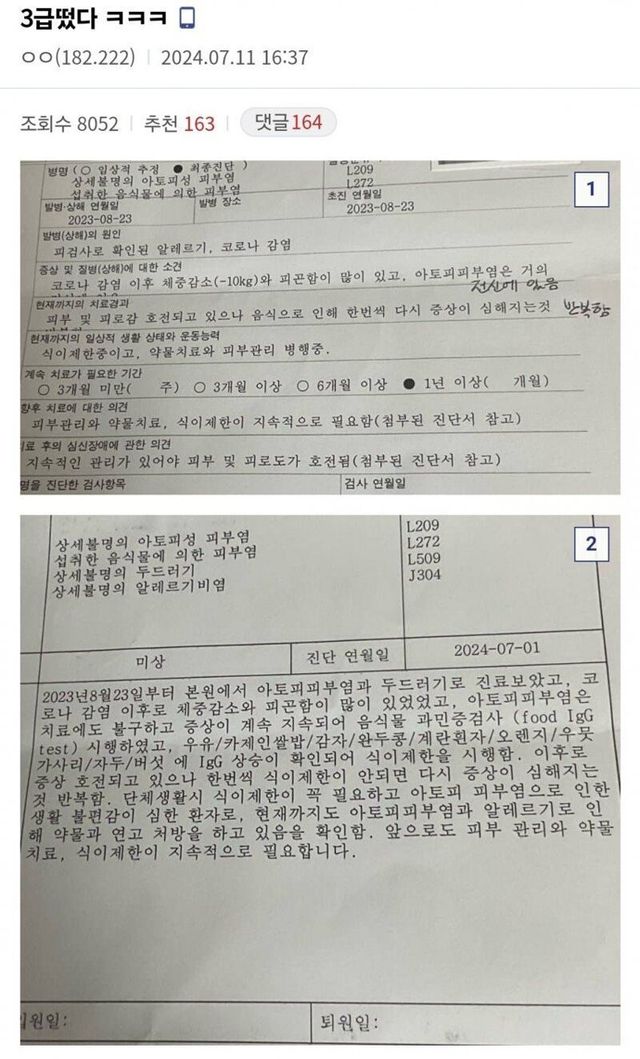 3급떴다 ㅋㅋㅋ
ㅇㅇ(182.222) 2024.07.11 16:37
조회수 8052 추천 163 댓글 164
1
병명 (○ 임상적 추정 ● 최종진단 )
상세불명의 아토피성 피부염 L209
섭취한 음식물에 의한 피부염 L272
발병·상해 연월일 발병 장소 초진 연월일
2023-08-23 2023-08-23
발병(상해)의 원인
피검사로 확인된 알레르기, 코로나 감염
증상 및 질병(상해)에 대한 소견
코로나 감염 이후 체중감소(-10kg)와 피곤함이 많이 있고, 아토피피부염은 거의
전신에 있음
현재까지의 치료경과
피부 및 피로감 호전되고 있으나 음식으로 인해 한번씩 다시 증상이 심해지는것 반복함
현재까지의 일상적 생활 상태와 운동능력
식이제한중이고, 약물치료와 피부관리 병행중.
계속 치료가 필요한 기간
○ 3개월 미만( 주) ○ 3개월 이상 ○ 6개월 이상 ● 1년 이상( 개월)
향후 치료에 대한 의견
피부관리와 약물치료, 식이제한이 지속적으로 필요함(첨부된 진단서 참고)
치료 후의 심신장애에 관한 의견
지속적인 관리가 있어야 피부 및 피로도가 호전됨(첨부된 진단서 참고)
명을 진단한 검사항목 검사 연월일
2
상세불명의 아토피성 피부염 L209
섭취한 음식물에 의한 피부염 L272
상세불명의 두드러기 L509
상세불명의 알레르기비염 J304
미상 진단 연월일 2024-07-01
2023년8월23일부터 본원에서 아토피피부염과 두드러기로 진료보았고, 코
로나 감염 이후로 체중감소와 피곤함이 많이 있었었고, 아토피피부염은
치료에도 불구하고 증상이 계속 지속되어 음식물 과민증검사 (food IgG
test) 시행하였고, 우유/카제인쌀밥/감자/완두콩/계란흰자/오렌지/우뭇
가사리/자두/버섯 에 IgG 상승이 확인되어 식이제한을 시행함. 이후로
증상 호전되고 있으나 한번씩 식이제한이 안되면 다시 증상이 심해지는
것 반복함. 단체생활시 식이제한이 꼭 필요하고 아토피 피부염으로 인한
생활 불편감이 심한 환자로, 현재까지도 아토피피부염과 알레르기로 인
해 약물과 연고 처방을 하고 있음을 확인함. 앞으로도 피부 관리와 약물
치료, 식이제한이 지속적으로 필요합니다.
입원일: 퇴원일: